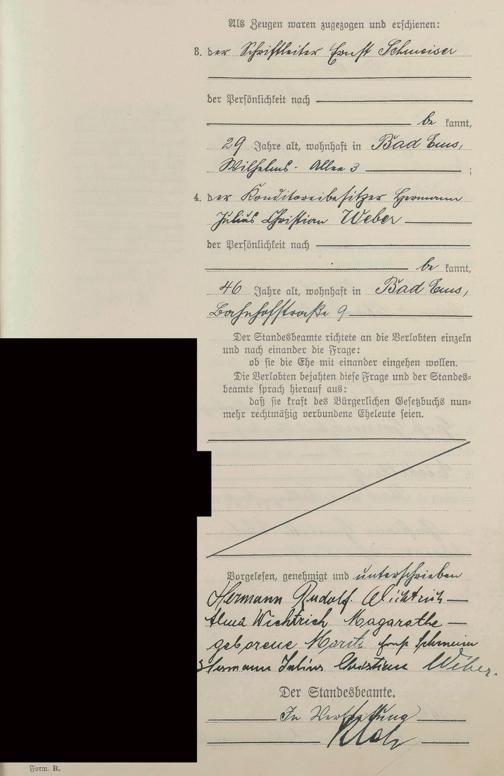 Als Zeugen waren zugezogen und erschienen:
3. der Schriftleiter Ernst Schmeiser
der Persönlichkeit nach
be kannt,
29 Jahre alt, wohnhaft in Bad Ems,
Wilhelms-Allee 3 ;
4. der Konditoreibesitzer Hermann
Julius Christian Weber
der Persönlichkeit nach
be kannt,
46 Jahre alt, wohnhaft in Bad Ems,
Bahnhofstraße 9
Der Standesbeamte richtete an die Verlobten einzeln
und nach einander die Frage:
ob sie die Ehe mit einander eingehen wollen.
Die Verlobten bejahten diese Frage und der Standes-
beamte sprach hierauf aus:
daß sie kraft des Bürgerlichen Gesetzbuchs nun-
mehr rechtmäßig verbundene Eheleute seien.
Vorgelesen, genehmigt und unterschrieben
Hermann Rudolf Wichtrich
Alma Wichtrich Magarathe
geborene Moritz Ernst Schmeiser
Hermann Julius Christian Weber.
Der Standesbeamte.
In Vertretung
Form. B.